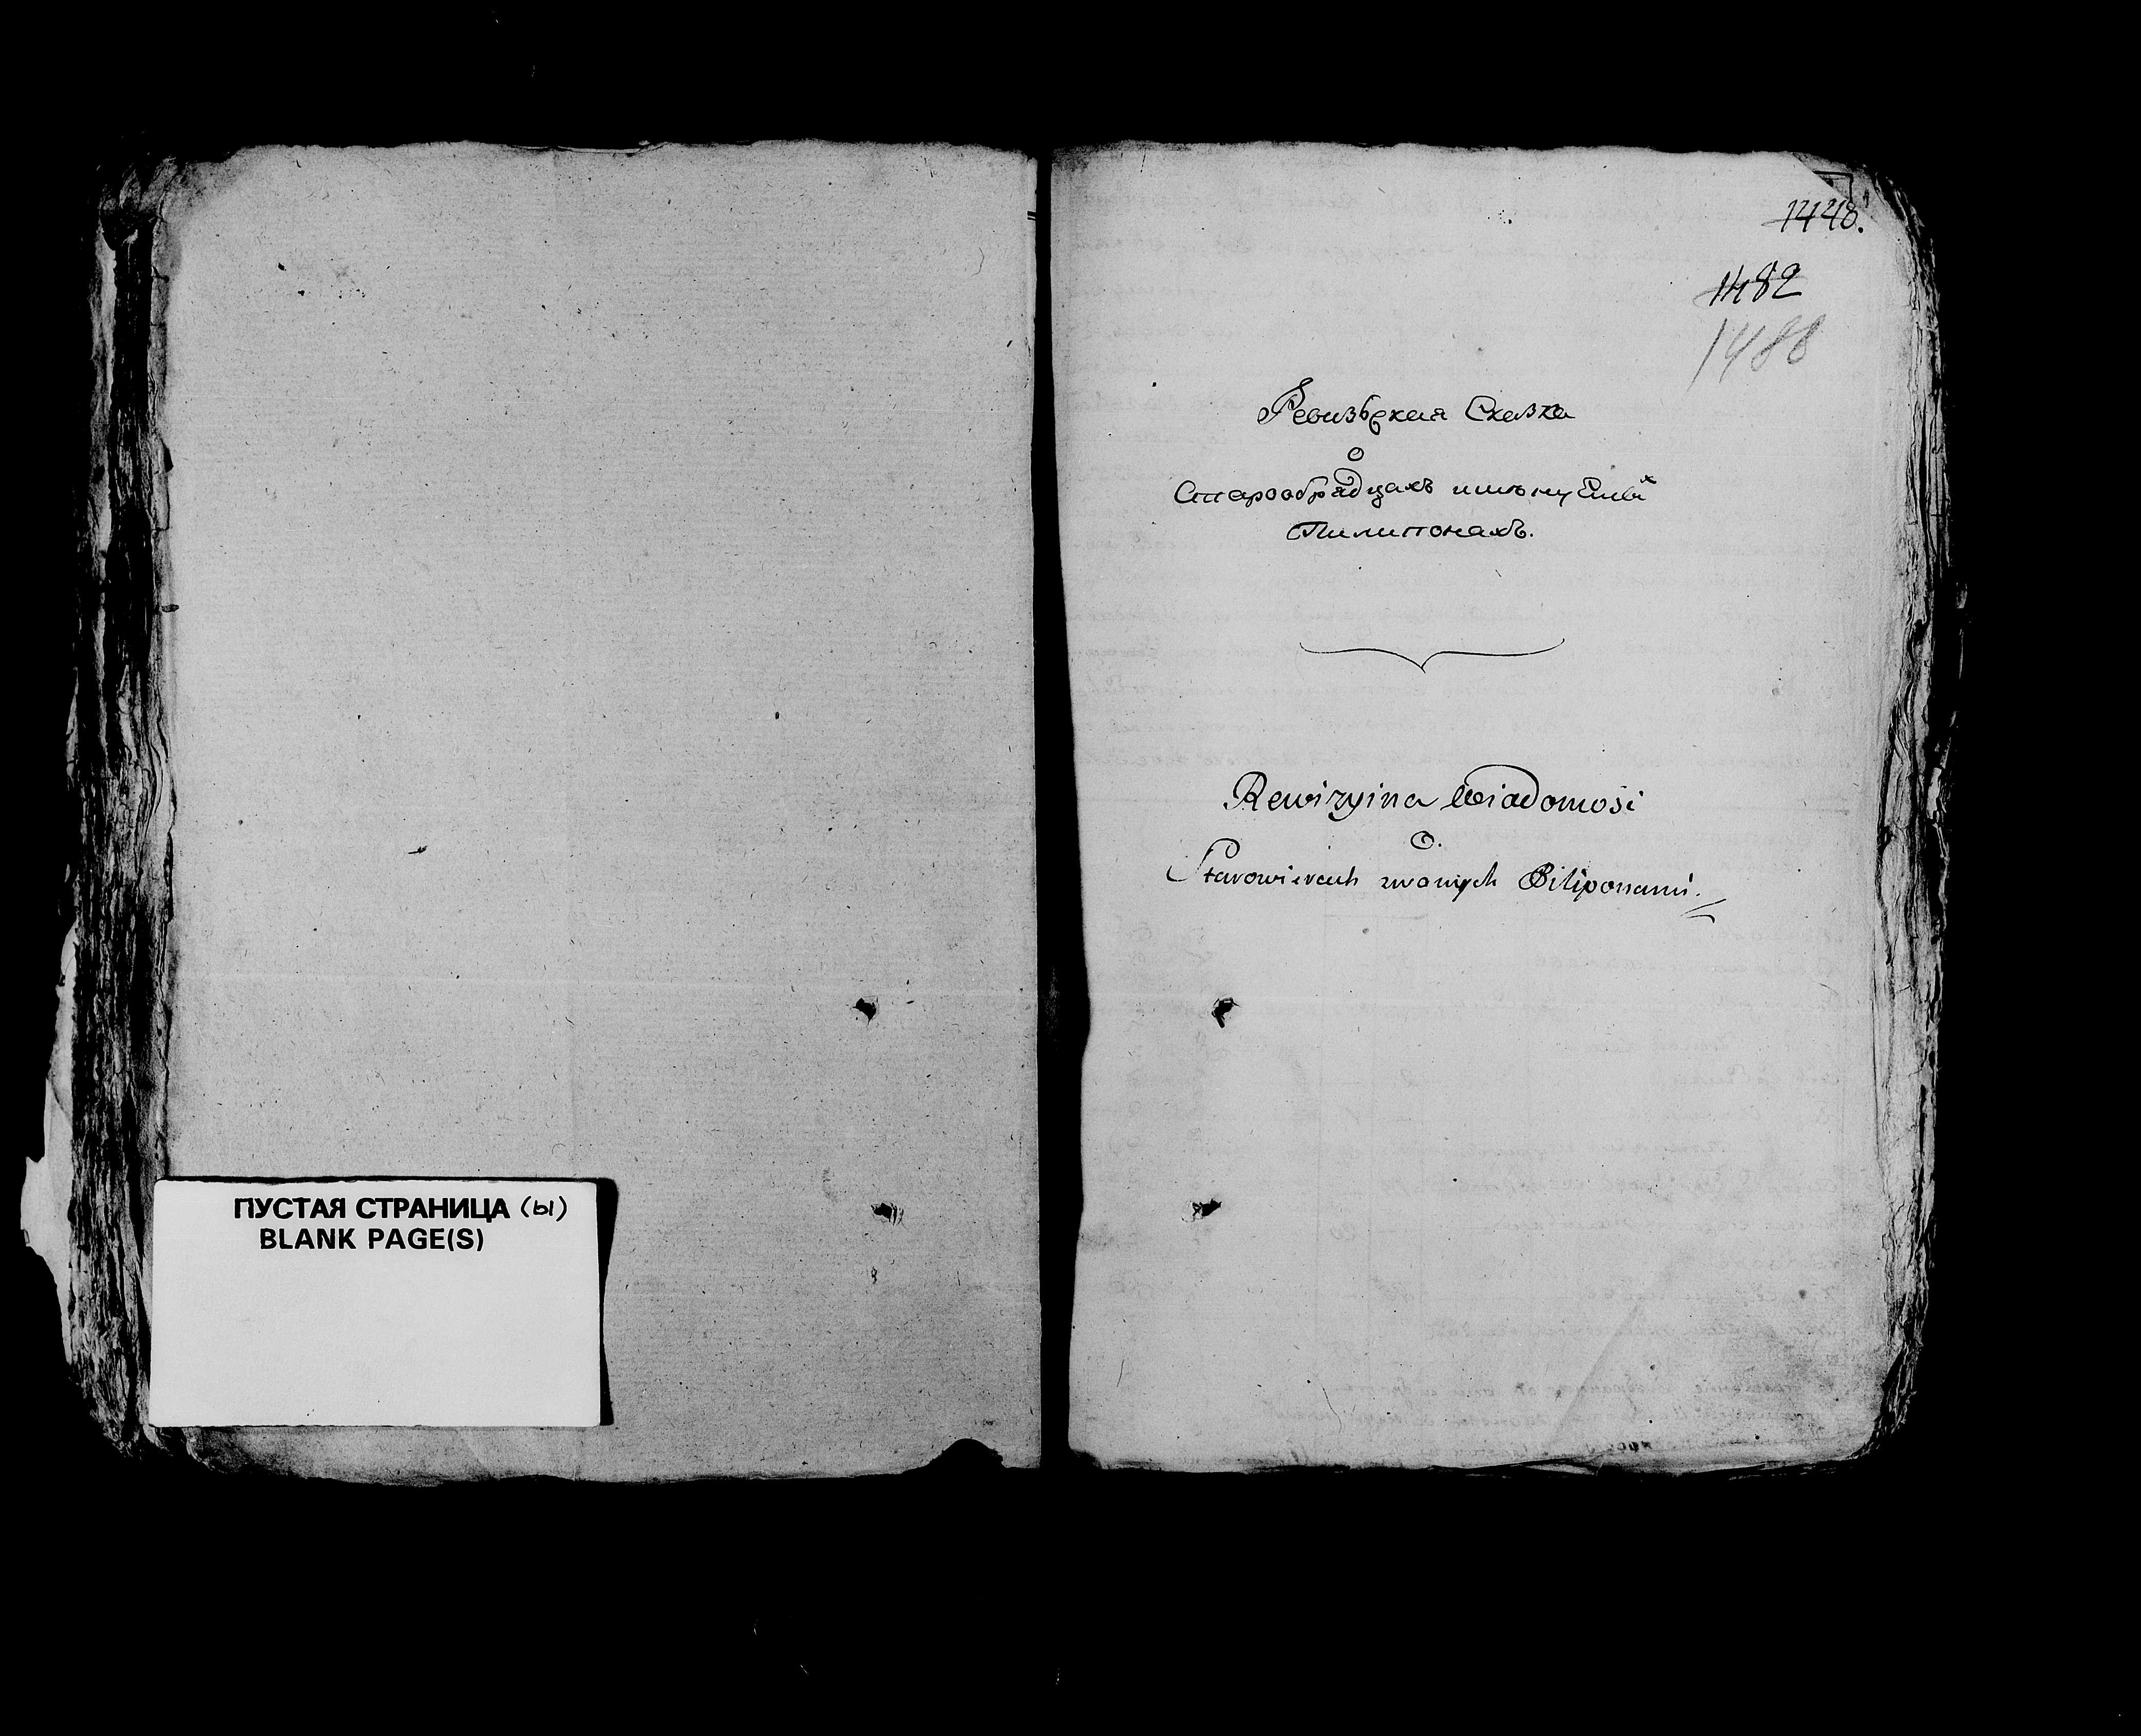 ПУСТАЯ СТРАНИЦА (ы)
BLANK PAGE(S)
1448.
1482
1488
Ревизьская Сказка
о
Старообрядцахъ имѣнуемыхъ
Пилипонахъ.
Rewizyina Wiadomość
O.
Starowiercach zwanych Pilponami.